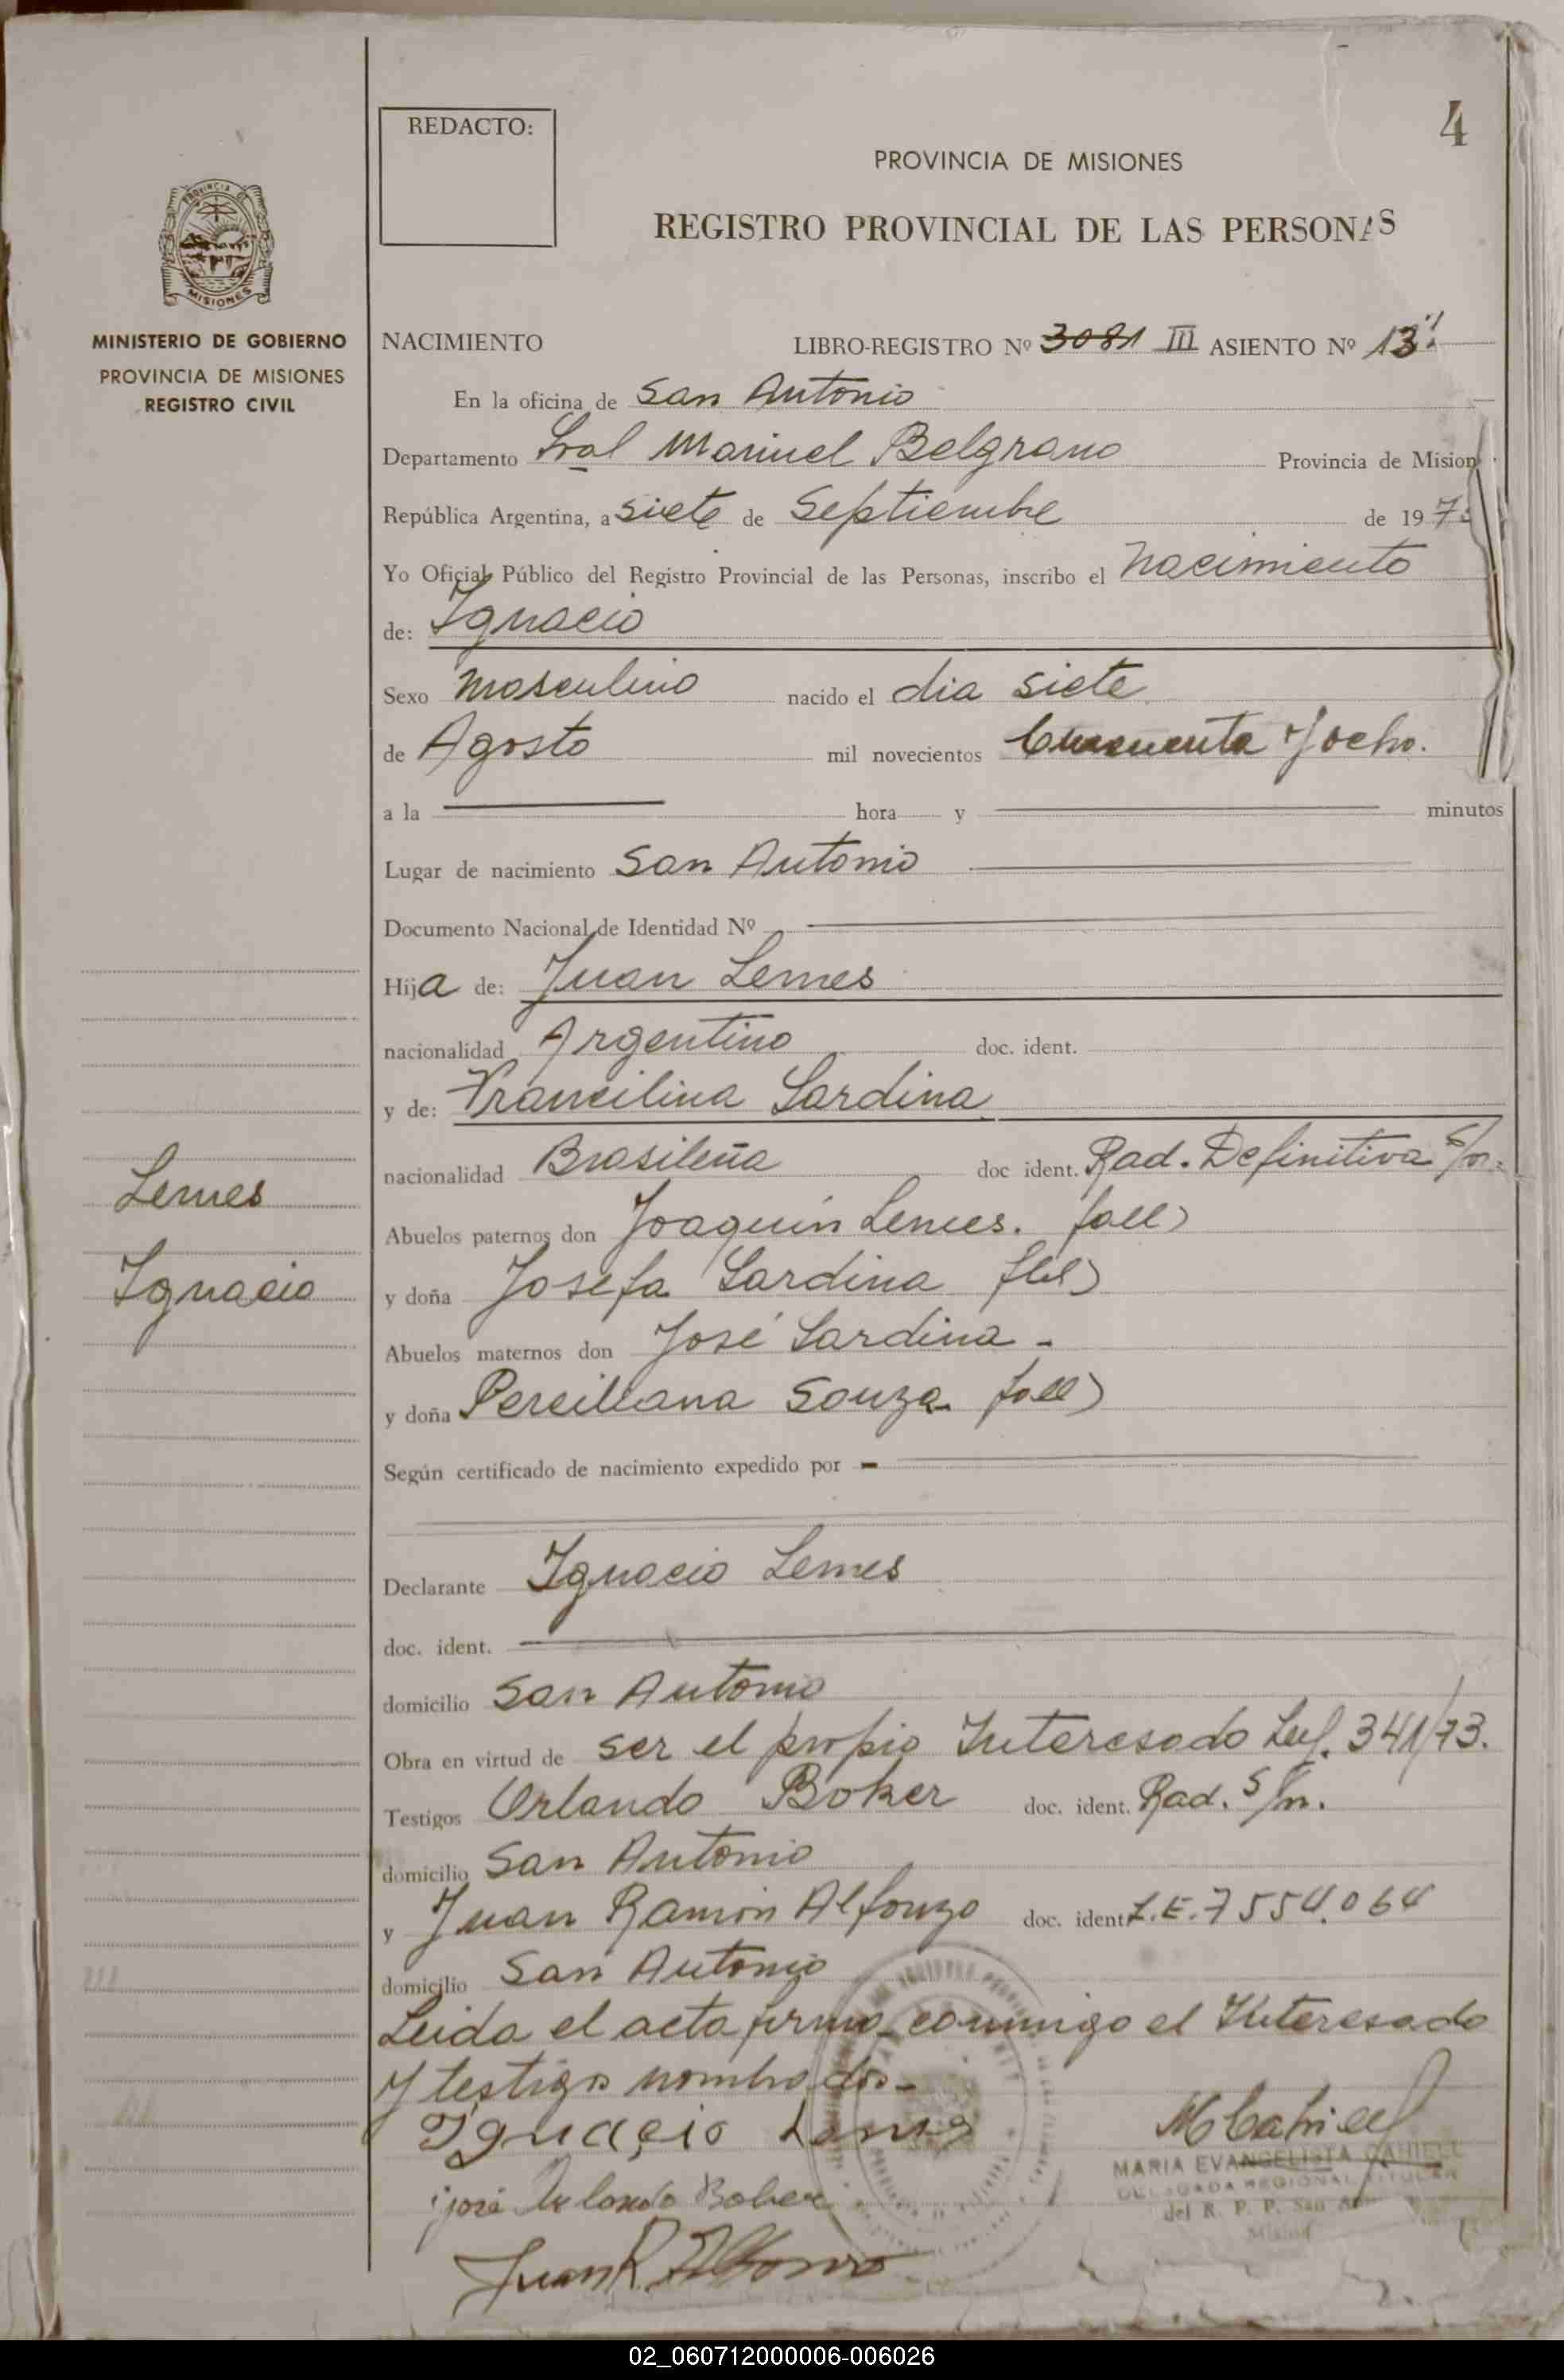 4
REDACTO:
PROVINCIA DE MISIONES
REGISTRO PROVINCIAL DE LAS PERSONAS
PROVINCIA DE
MISIONES
MINISTERIO DE GOBIERNO
PROVINCIA DE MISIONES
REGISTRO CIVIL
NACIMIENTO LIBRO-REGISTRO Nº 3081 III ASIENTO Nº 13
En la oficina de San Antonio
Departamento Gral Manuel Belgrano Provincia de Mision
República Argentina, a siete de Septiembre de 197
Yo Oficial Público del Registro Provincial de las Personas, inscribo el nacimiento
de: Ignacio
Sexo masculino nacido el dia siete
de Agosto mil novecientos Cincuenta y ocho.
a la hora y minutos
Lugar de nacimiento San Antonio
Documento Nacional de Identidad Nº
Hija de: Juan Lemes
nacionalidad Argentino doc. ident.
y de: Francilina Sardina
nacionalidad Brasileña doc ident. Rad. Definitiva S/n.
Lemes
Abuelos paternos don Joaquín Lemes. fall)
Ignacio
y doña Josefa Sardina
Abuelos maternos don José Sardina -
y doña Percilliana Souza fall)
Según certificado de nacimiento expedido por -
Declarante Ignacio Lemes
doc. ident.
domicilio San Antonio
Obra en virtud de ser el propio Interesado 341/73.
Testigos Orlando Boker doc. ident. Rad. S/n.
domicilio San Antonio
y Juan Ramón Alfonzo doc. ident L.E. 7554.064
domicilio San Antonio
Leida el acta firma conmigo el Interesado
y testigos nombrados-
Ignacio Lemes
MCahiell
MARIA EVANGELISTA CAHIELL
DELEGADA REGIONAL TITULAR
del R. P. P. San
José Orlando Boker
Juan R. Alfonzo
02_060712000006-006026